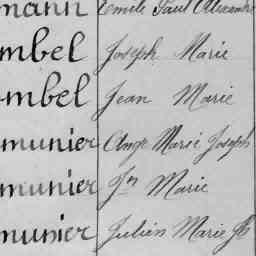 mann Emile Paul Alexandre
mbel Joseph Marie
mbel Jean Marie
munier Ange Marie Joseph
munier Jn Marie
munier Julien Marie